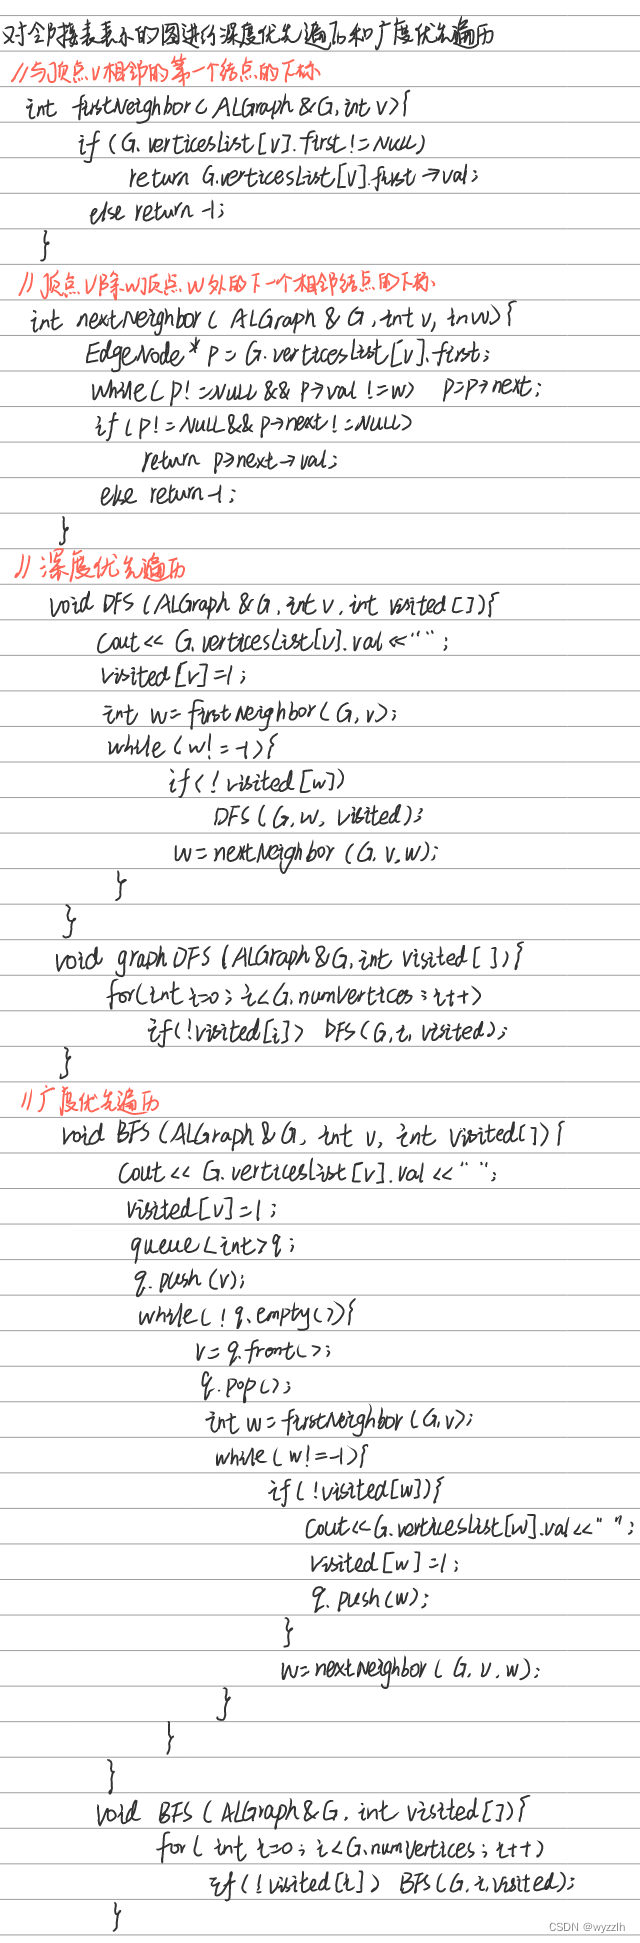 对邻接表表示的图进行深度优先遍历和广度优先遍历
//与顶点v相邻的第一个结点的下标
int firstNeighbor(ALGraph &G,int v){
if(G.verticesList[v].first!=Null)
return G.verticesList[v].first→val;
else return -1;
}
//顶点v除顶点w外的下一个相邻结点的下标
int nextNeighbor(ALGraph & G,int v,inw){
EdgeNode* p=G.verticesList[v].first;
while(p!=NULL && p→val !=w) p=p→next;
if(p!=NULL&&p→next!=NULL)
return p→next→val;
else return -1;
}
//深度优先遍历
void DFS(ALGraph &G,int v,int visited[]){
cout<< G.verticesList[v].val<<" ";
visited[v]=1;
int w=firstNeighbor(G,v);
while(w!=-1){
if(!visited[w])
DFS(G,w,visited);
w=nextNeighbor(G,v,w);
}
}
void graphDFS(ALGraph&G,int visited[]){
for(int i=0;i<G.numVertices;i++)
if(!visited[i]) DFS(G,i,visited);
}
//广度优先遍历
void BFS(ALGraph&G, int v, int visited[]){
cout<< G.verticesList[v].val<<" ";
visited[v]=1;
queue<int>q;
q.push(v);
while(!q.empty()){
v=q.front();
q.pop();
int w=firstNeighbor(G,v);
while(w!=-1){
if(!visited[w]){
cout<<G.verticesList[w].val<<" ";
visited[w]=1;
q.push(w);
}
w=nextNeighbor(G,v,w);
}
}
}
void BFS(ALGraph&G,int visited[]){
for(int i=0;i<G.numVertices;i++)
if(!visited[i]) BFS(G,i,visited);
}
CSDN @wyzzlh